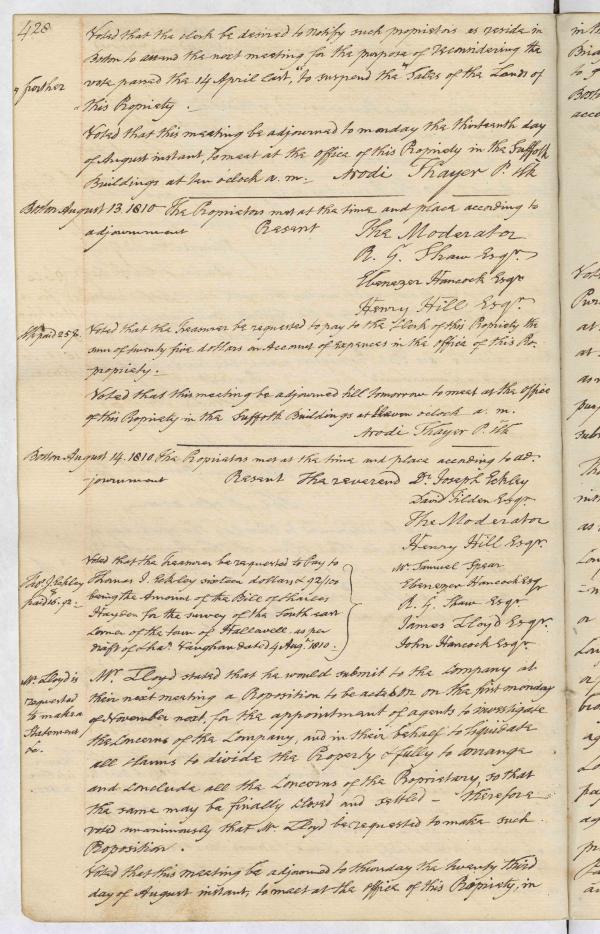 428
Voted that the clerk be desired to notify such proprietors as reside in
Boston to attend the next meeting for the purpose of reconsidering the
vote passed the 14 April last, "to suspend the " Sales of the Lands of
" further
this Propriety.
Voted that this meeting be adjourned to monday the thirteenth day
of August instant, to meet at the office of this Propriety in the Suffolk
Buildings at ten oclock a. m. Arodi Thayer P. Clk
Boston August 13. 1810 The Proprietors met at the time and place according to
adjournment Present The Moderator
R. G. Shaw Esqr.
Ebenezer Hancock Esqr
Henry Hill Esqr.
paid 25$. Voted that the Treasurer be requested to pay to the Clerk of this Propriety the
sum of twenty five dollars on Account of expences in the office of this Pro-
propriety.
Voted that this meeting be adjourned till tomorrow to meet at the office
of this Propriety in the Suffolk Buildings at Eleven oclock a. m.
Arodi Thayer P. Clk
Boston August 14. 1810 The Proprietors met at the time and place according to ad-
journment Present The reverend Dr. Joseph Eckley
David Tilden Esqr.
The Moderator
Henry Hill Esqr.
Mr Samuel Spear
Ebenezer Hancock Esq
R. G. Shaw Esqr.
James Lloyd Esqr.
John Hancock Esqr.
Thos. J. Eckley
paid 16.92
Voted that the Treasurer be requested to Pay to
Thomas J. Eckley sixteen dollars & 92/100
being the Amount of the Bill of Charles
Hayden for the survey of the South east
Corner of the town of Hallowell, as per
draft of Chas. Vaughan dated 4 Augt. 1810.
Mr Lloyd is
requested
to make a
Statement
&c.
Mr. Lloyd stated that he would submit to the Company at
their next meeting a Proposition to be acted on on the first monday
of November next, for the appointment of agents to investigate
the Concerns of the Company, and in their behalf to liquidate
all claims to divide the Property & fully to arrange
and Conclude all the Concerns of the Proprietary, so that
the same may be finally Closed and settled – therefore
voted unanimously that Mr Lloyd be requested to make such
Proposition.
Voted that this meeting be adjourned to thursday the twenty third
day of August instant, to meet at the office of this Propriety, in